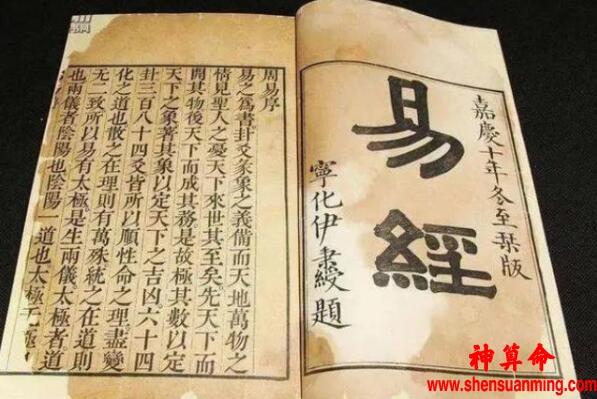 嘉慶十年冬至栞版
易經
寧化伊秉綬題
周易序
易之爲書卦爻彖象之義備而天地萬物之
情見聖人之憂天下來世其至矣先天下而
開其物後天下而成其務是故極其數以定
天下之象著其象以定天下之吉凶六十四
卦三百八十四爻皆所以順性命之理盡變
化之道也散之在理則有萬殊統之在道則
无二致所以易有太極是生兩儀太極者道
也兩儀者陰陽也陰陽一道也太極无極
神算命
www.shensuanming.com